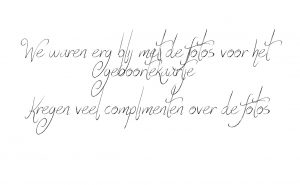 We waren erg blij met de fotos voor het
geboortekaartje
Kregen veel complimenten over de fotos